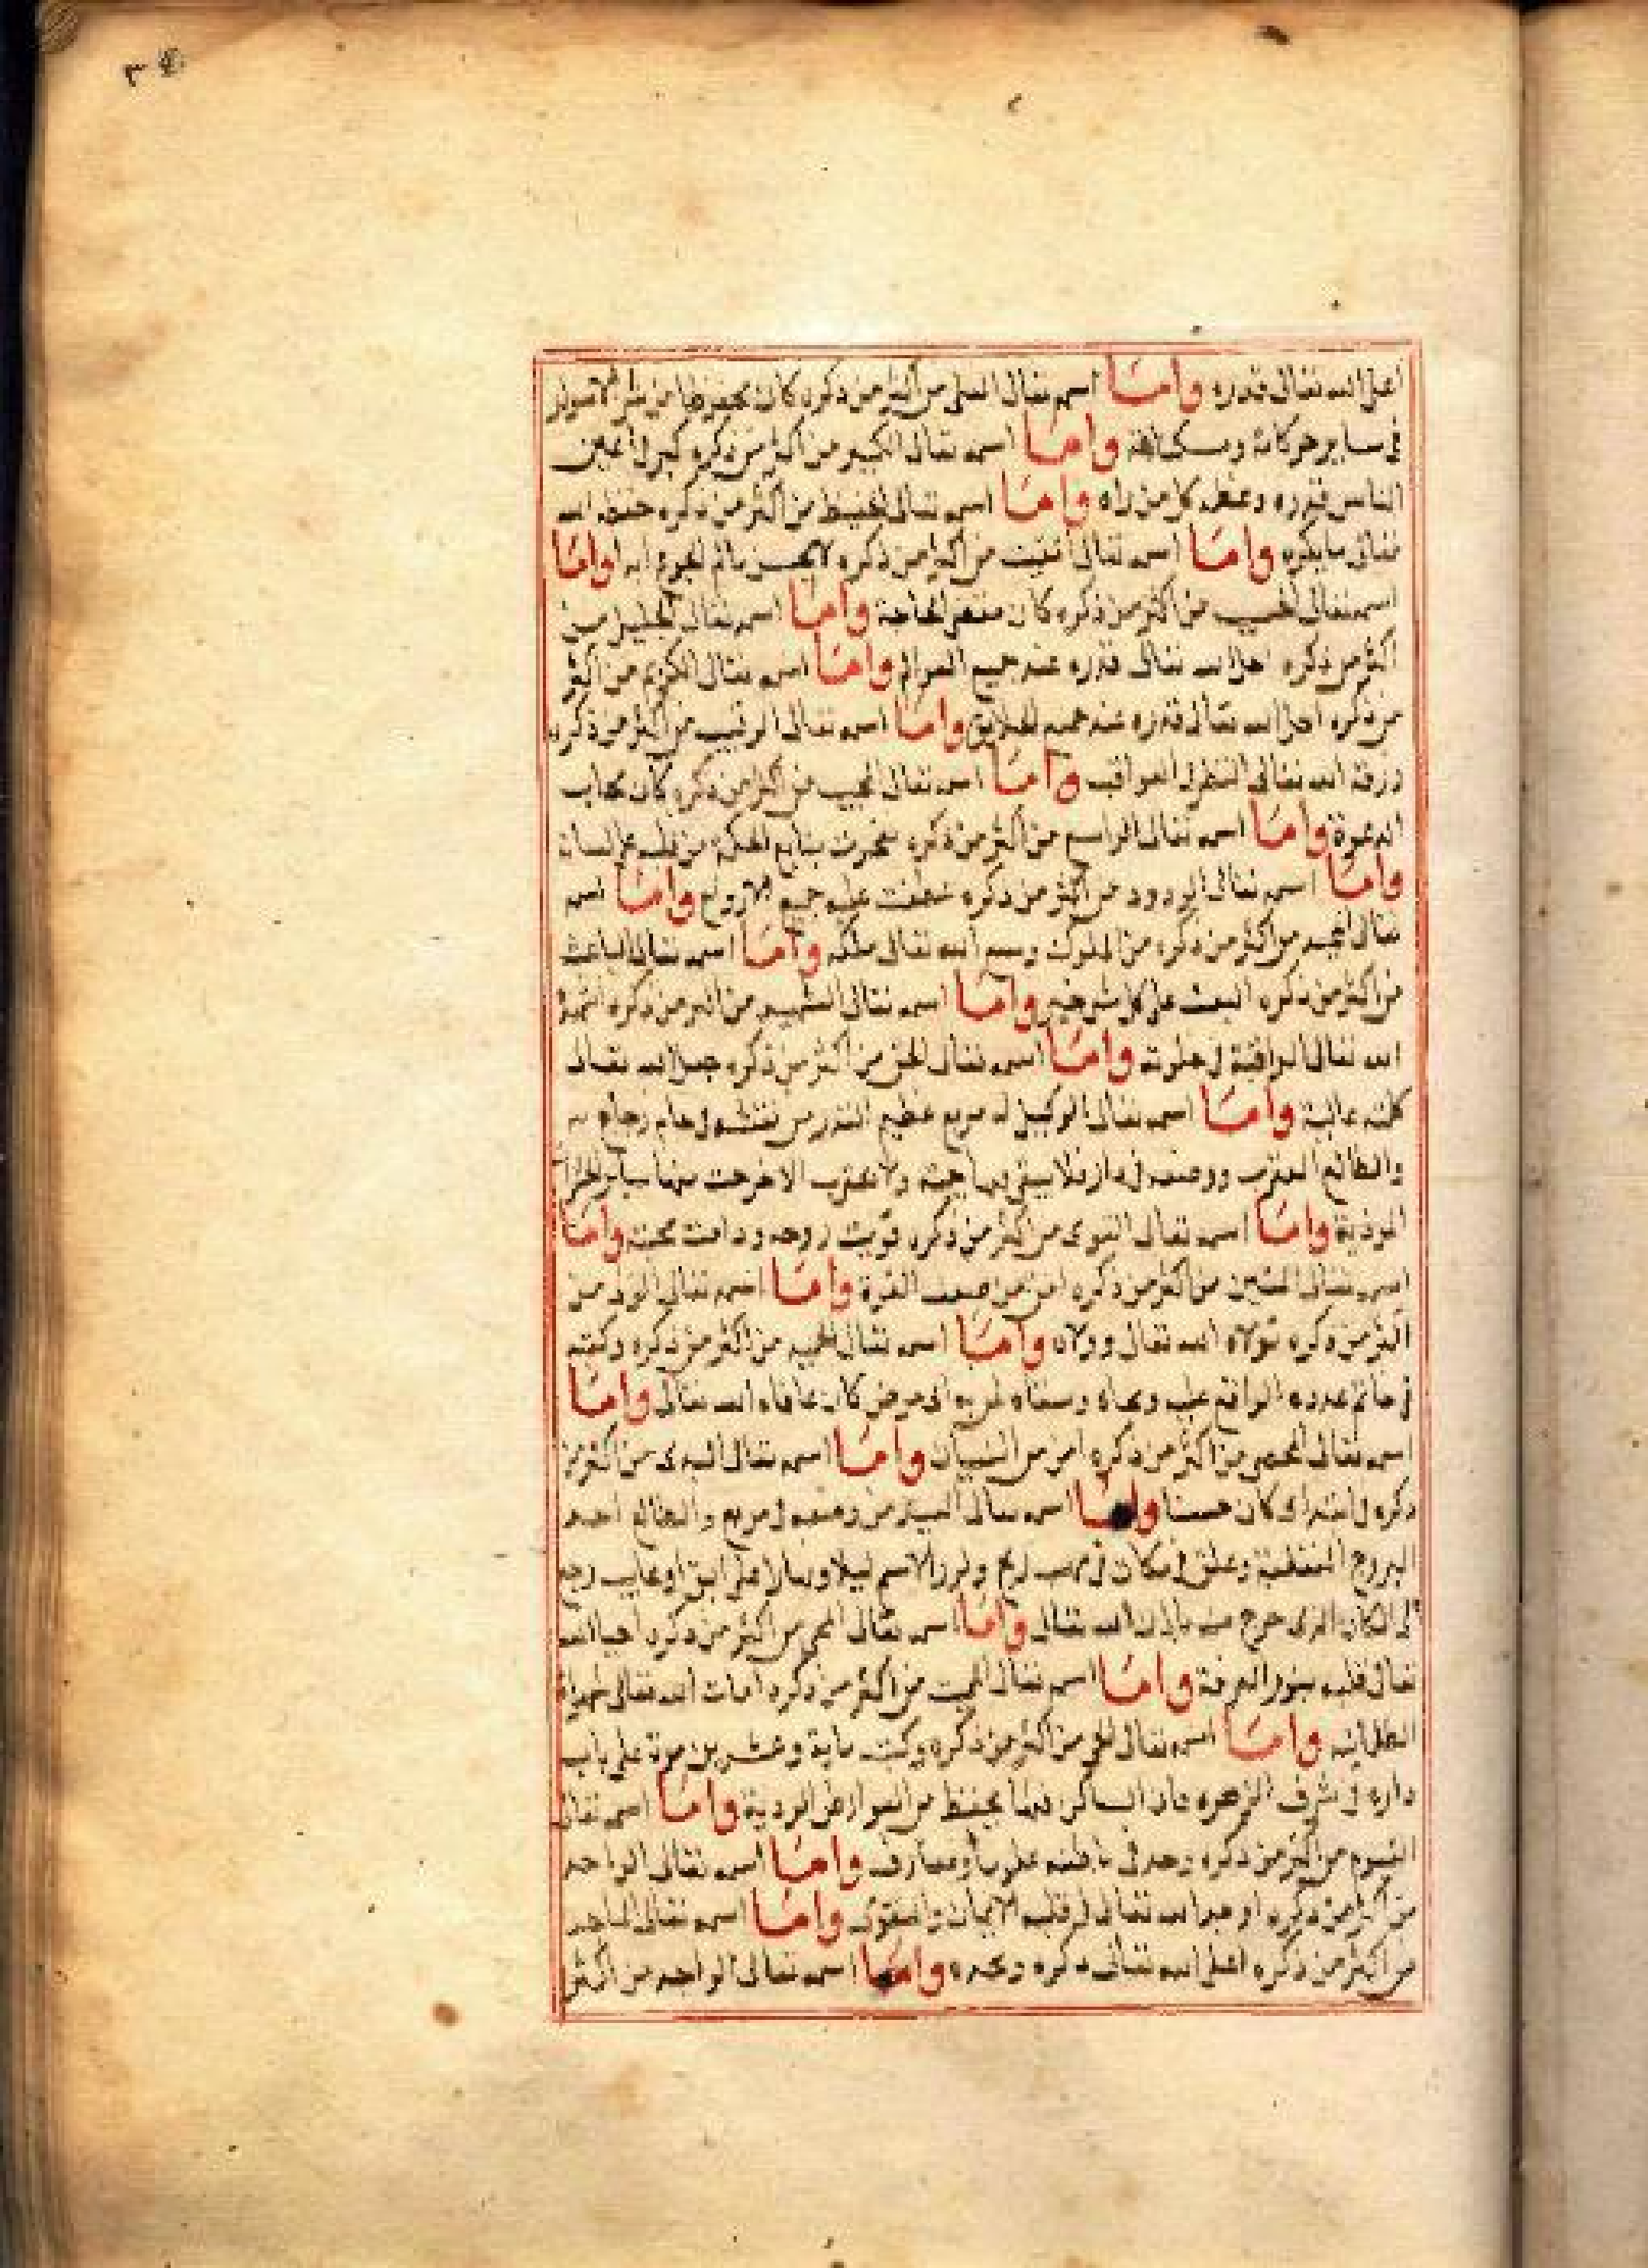 ٣٤
اعلى الله تعالى قدره واما اسمه تعالى العلى من اكثر من ذكره كان محفوظا من
فى ساير حركاته وسكناته واما اسمه تعالى الكبير من اكثر من ذكره كبر فى اعين
الناس قدره وعظمه كل من راه واما اسمه تعالى الحفيظ من اكثر من ذكره حفظه الله
تعالى مما يكره واما اسمه تعالى المقيت من اكثر من ذكره لا يحس بالم الجوع ابدا واما
اسمه تعالى الحسيب من اكثر من ذكره كان مقضى الحاجة واما اسمه تعالى الجليل من
اكثر من ذكره اجل الله تعالى قدره عند جميع العوالم واما اسمه تعالى الكريم من اكثر
من ذكره اجل الله تعالى قدره عند جميع الخلايق واما اسمه تعالى الرقيب من اكثر من ذكره
رزقه الله تعالى النظر فى العواقب واما اسمه تعالى المجيب من اكثر من ذكره كان مجاب
الدعوة واما اسمه تعالى الواسع من اكثر من ذكره تفجرت ينابيع الحكمة من قلبه على لسانه
واما اسمه تعالى الودود من اكثر من ذكره عطفت عليه جميع الارواح واما اسمه
تعالى المجيد من اكثر من ذكره من الملوك وسع الله تعالى ملكه واما اسمه تعالى الباعث
من اكثر من ذكره انبعث على كل شى خير واما اسمه تعالى الشهيد من اكثر من ذكره اشهده
الله تعالى المراقبة فى خلوته واما اسمه تعالى الحق من اكثر من ذكره جعل الله تعالى
كلمته عالية واما اسمه تعالى الوكيل له مربع عظيم القدر من نقشه فى جام زجاج
والطالع العقرب ووضعه فى دار فلا يبقى بها حية ولا عقرب الا خرجت منها
الموذية واما اسمه تعالى القوى من اكثر من ذكره قويت روحه ودامت محبته واما
اسمه تعالى المتين من اكثر من ذكره امن من ضعف القوة واما اسمه تعالى الولى من
اكثر من ذكره تولاه الله تعالى وولاه واما اسمه تعالى الحميد من اكثر من ذكره وكتبه
فى خاتم عدده الواقع عليه ومحاه وسقاه لمن به اى مرض كان عافاه الله تعالى واما
اسمه تعالى المحصى من اكثر من ذكره امن من النسيان واما اسمه تعالى المبدى من اكثر من
ذكره فى ابتداى كان حسنا واما اسمه تعالى المعيد من وضعه فى مربع والطالع احد
البروج المنقلبة وعلق فى مكان فى مهب الريح وكرر الاسم ليلا ونهارا على ابق او غايب رجع
الى المكان الذى خرج منه باذن الله تعالى واما اسمه تعالى المحى من اكثر من ذكره احيا الله
تعالى قلبه بنور المعرفة واما اسمه تعالى المميت من اكثر من ذكره امات الله تعالى شهواته
الظلمانيه واما اسمه تعالى الحى من اكثر من ذكره وكتبه ماية وعشرين مرة على باب
داره فى شرف الزهره فان الساكن فيها يحفظ من العوارض الردية واما اسمه تعالى
القيوم من اكثر من ذكره وجد فى باطنه علوما ومعارف واما اسمه تعالى الواجد
من اكثر من ذكره اوجد الله تعالى فى قلبه الايمان والتقوى واما اسمه تعالى الماجد
من اكثر من ذكره اعلى الله تعالى ذكره ومجده واما اسمه تعالى الواحد من اكثر